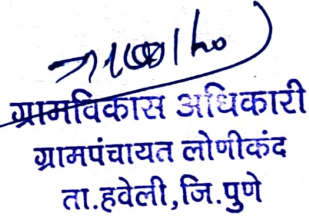 ग्रामविकास अधिकारी
ग्रामपंचायत लोणीकंद
ता.हवेली,जि.पुणे